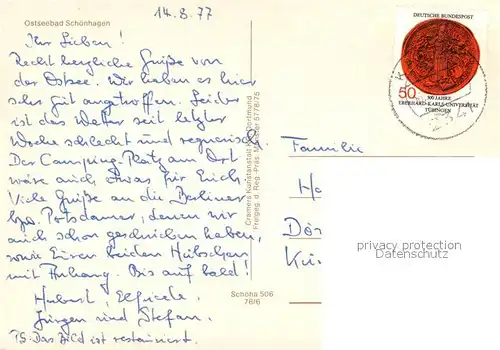 Ostseebad Schönhagen
14.8.77
Ihr Lieben!
Recht herzliche Grüße von
der Ostsee. Wir haben es hier
sehr gut angetroffen. Leider
ist das Wetter seit letzter
Woche schlecht und regnerisch.
Der Camping-Platz am Ort
wäre auch etwas für Euch.
Viele Grüße an die Berliner
bzw. Potsdamer, denen wir
auch schon geschrieben haben,
sowie Euren beiden Hübschen
mit Anhang. Bis auf bald!
Hubert, Elfriede,
Jürgen und Stefan.
PS: Das Bild ist restauriert.
Cramers Kunstanstalt Dortmund
Freigeg. d. Reg.-Präs. Münster 5778/75
Schöha 506
76/6
DEUTSCHE BUNDESPOST
50
500 JAHRE
EBERHARD-KARLS-UNIVERSITÄT
TÜBINGEN
Familie
privacy protection
Datenschutz